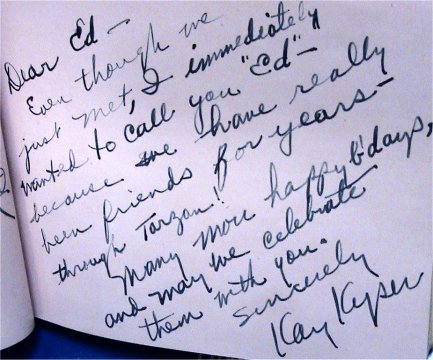 Dear Ed —
Even though we
just met, I immediately
wanted to call you "Ed" —
because we have really
been friends for years —
through Tarzan!
Many more happy b'days,
and may we celebrate
them with you.
Sincerely
Kay Kyser